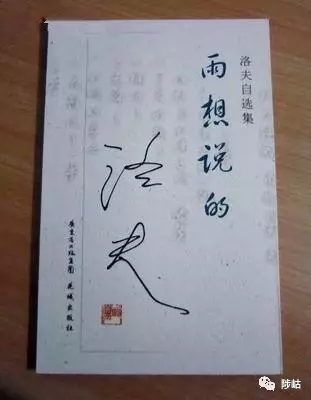 洛夫自选集
雨想说的
洛夫
广东省出版集团 花城出版社
陟岵